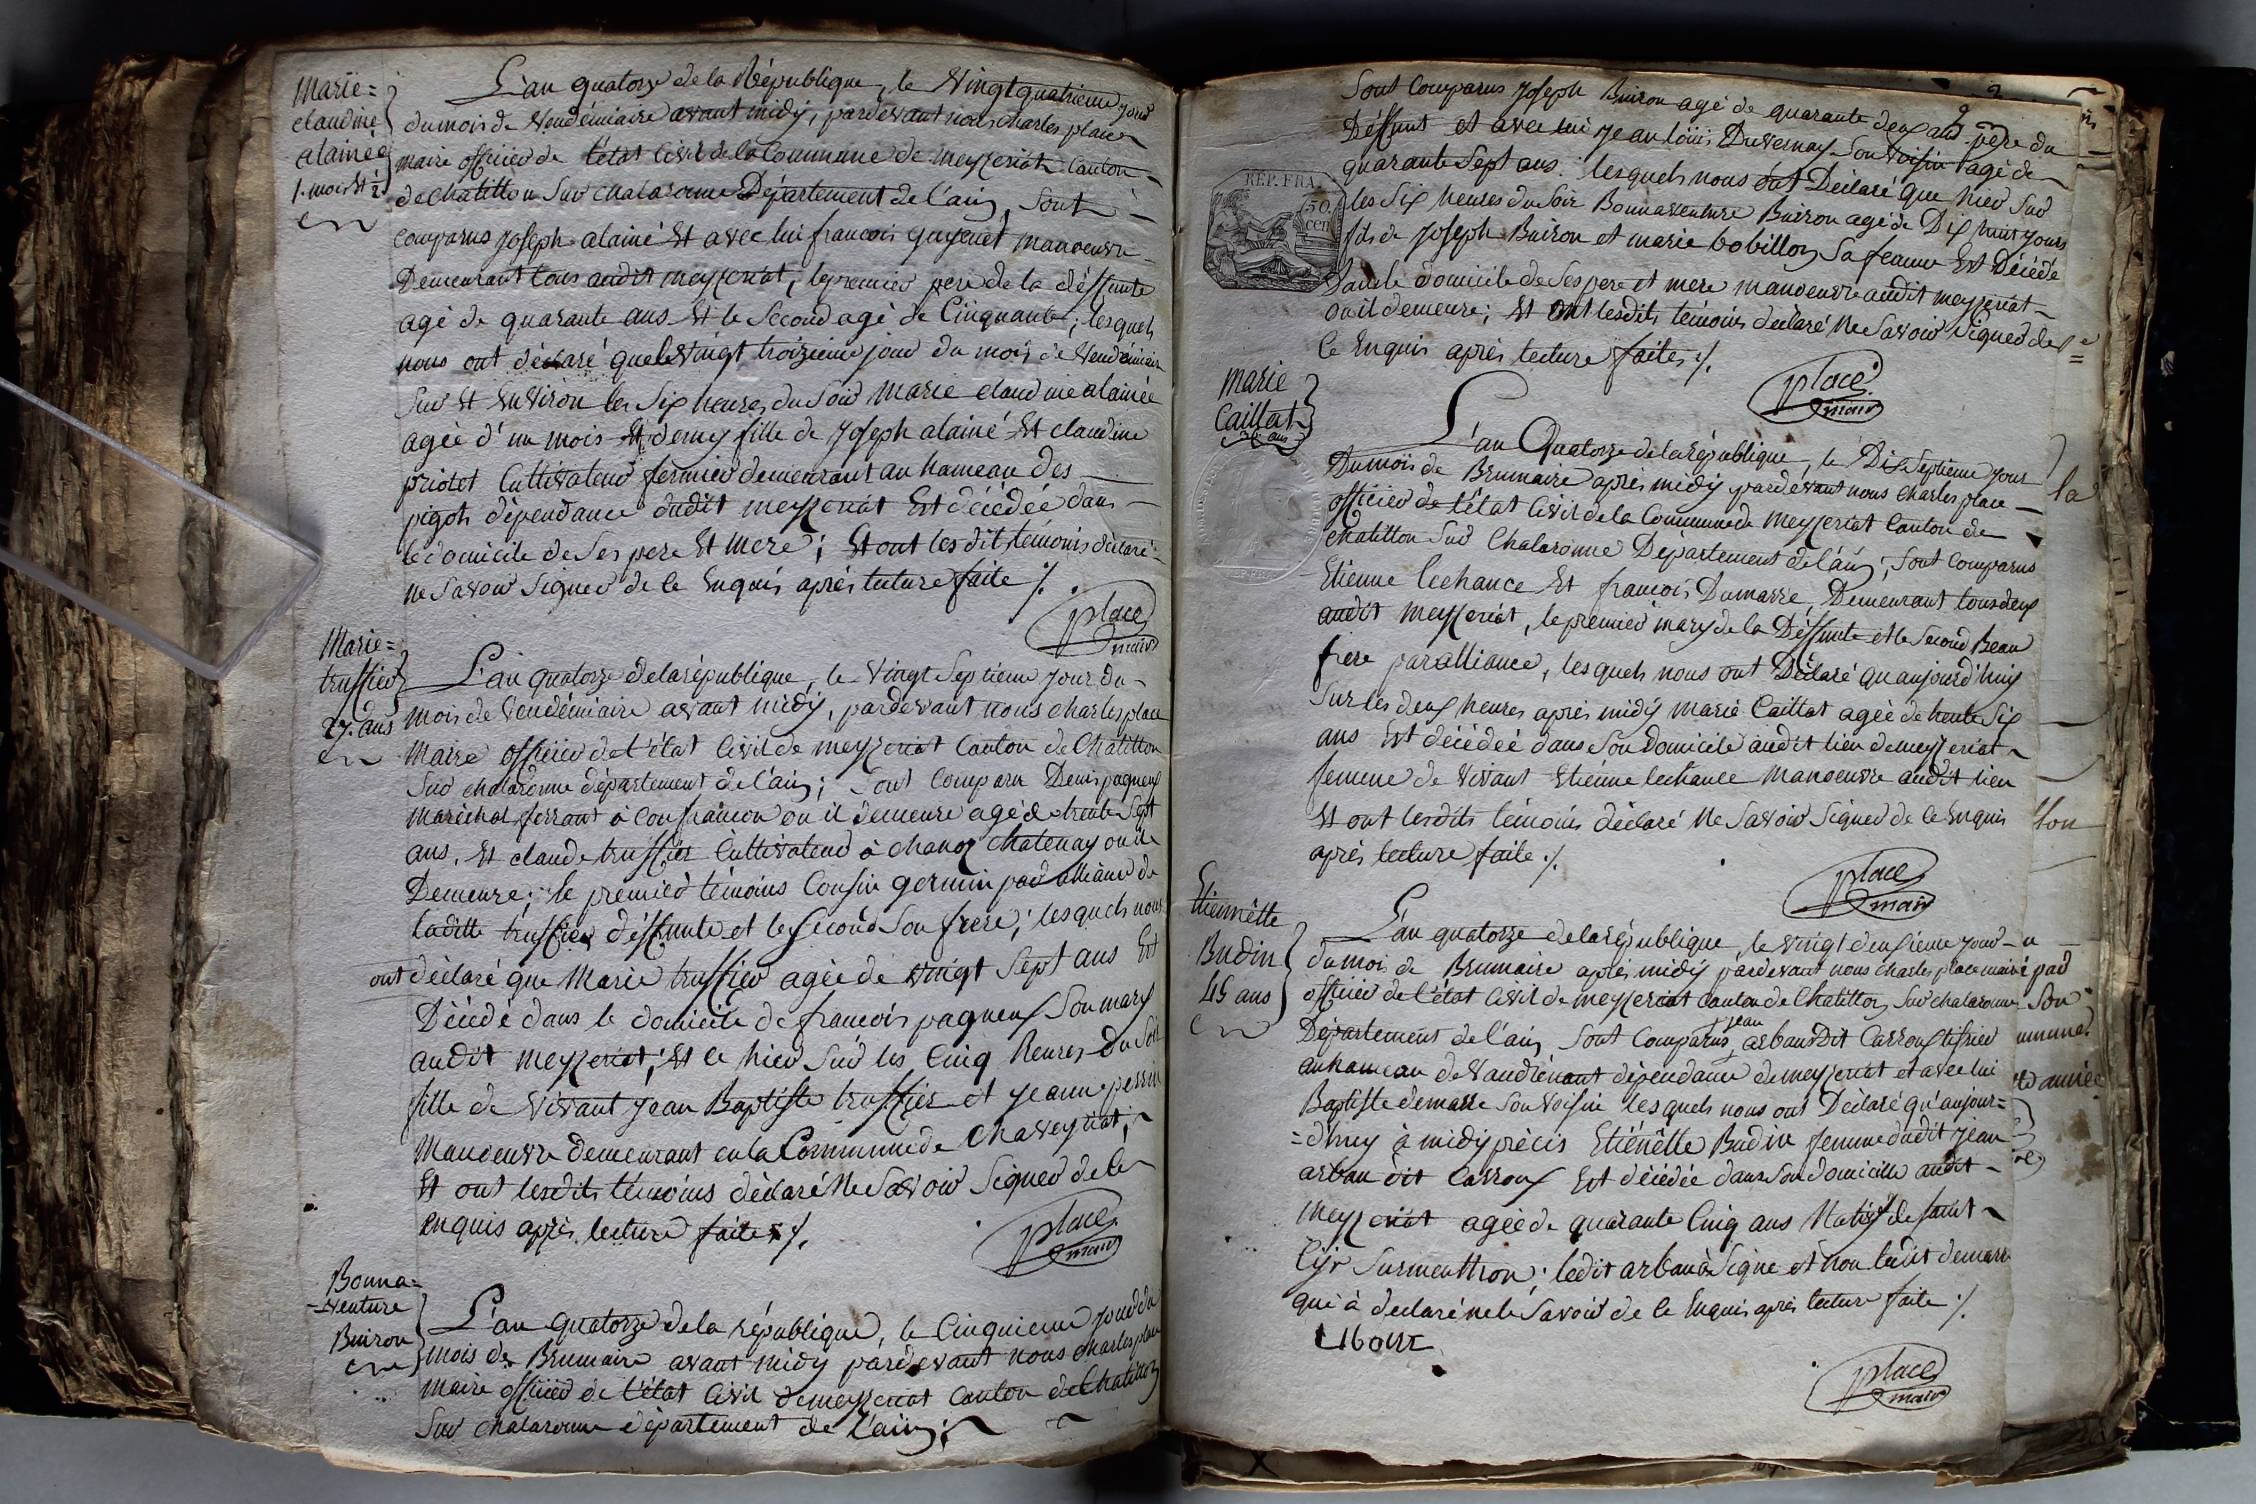 Marie=
claudine
alainée
1. mois et ½
L'an quatorze de la République, le Vingt quatrieme jour
du mois de Vendémiaire avant midy, pardevant nous charles place
maire officier de l'état Civil de la Commune de meyzeriat Canton
de chatillon Sur chalaronne Département de l'ain, Sont
comparus joseph alainé Et avec lui francois guyenet manoeuvre
Demeurant tous audit meyzeriat, le premier pere de la déffunte
agé de quarante ans Et le Second agé de Cinquante; lesquels
nous ont déclaré que le vingt troizieme jour du mois de Vendémiaire
Sur Et Environ les Six heures du Soir Marie claudine alainée
agée d'un mois Et demy fille de joseph alainé Et claudine
priotet Cultivateur fermier demeurant au hameau des
pigots dépendance dudit meyzeriat Est décédée dans
le domicile de Ses pere Et mere; Et ont lesdits témoins déclaré
ne Savoir Signer de ce Enquis après lecture faite ./.
place
maire
Marie=
truffier
27. ans
L'an quatorze de la république, le vingt Septieme jour du
mois de Vendémiaire avant midy, pardevant nous charles place
Maire officier de l'état Civil de meyzeriat Canton de Chatillon
Sur chalaronne département de l'ain; Sont Comparu Denis pagneux
maréchal ferrant à Confrancon ou il demeure agé de trente Sept
ans, Et claude truffier Cultivateur à chanoz chatenay ou il
Demeure; le premier témoins Cousin germin par alliance de
ladite truffier déffunte et le Second Son frere; lesquels nous
ont déclaré que Marie truffier agée de vingt Sept ans Est
Décédé dans le domicile de francois pagneux Son mary
audit meyzeriat; Et ce hier Sur les Cinq heures du Soir
fille de vivant jean Baptiste truffier et jeanne perrin
Manoeuvre demeurant en la Commune de Chaveyriat;
Et ont lesdits témoins déclaré Ne Savoir Signer de ce
enquis après lecture faite ./.
place
maire
Bonna=
=venture
Buiron
L'an quatorze de la république, le Cinquieme jour du
mois de Brumaire avant midy pardevant nous charles place
maire officier de l'état Civil de meyzeriat Canton de Chatillon
Sur chalaronne département de l'ain;
Sont Comparus joseph Buiron agé de quarante deux ans pere du
Déffunt et avec lui jean Loüis Duvernay Son Voisin agé de
quarante Sept ans. lesquels nous ont Déclaré que hier Sur
les Six heures du Soir Bonnaventure Buiron agé de Dix huit jours
fils de joseph Buiron et marie bobillon Sa femme Est Décédé
dans le domicile de Ses pere et mere manoeuvre audit meyzeriat
ou il demeure; Et Ont lesdits témoins déclaré Ne Savoir Signer de
ce Enquis après lecture faite ./.
REP. FRA.
50
cen
place
maire
marie
Caillat
36 ans
L'an Quatorze de la république, le Dix Septieme jour
Du mois de Brumaire après midy pardevant nous charles place
officier de l'état Civil de la Commune de Meyzeriat Canton de
chatillon Sur Chalaronne Département de l'ain; Sont Comparus
Etienne lechance Et francois Dumarre, Demeurant tous deux
audit meyzeriat, le premier mary de la Déffunte et le Second Beau
frere par alliance, lesquels nous ont Déclaré qu'aujourd'huy
Sur les deux heures après midy Marie Caillat agée de trente Six
ans Est décédée dans Son Domicile audit lieu de meyzeriat
femme de Vivant Etienne lechance manoeuvre audit lieu
Et ont lesdits témoins déclaré Ne Savoir Signer de ce Enquis
après lecture faite ./.
place
maire
Etiennette
Budin
45 ans
L'an quatorze de la république, le vingt deuxieme jour
du mois de Brumaire après midy pardevant nous charles place maire
officier de l'état Civil de meyzeriat canton de Chatillon Sur chalaronne
Département de l'ain Sont Comparus jean arban Dit Carroux tissier
au hameau de Vaudrénant dépendance de meyzeriat et avec lui
Baptiste demarre Son Voisin lesquels nous ont Déclaré qu'aujour=
=d'huy à midy précis Etiénette Budin femme dudit jean
arban dit Carroux Est décédée dans Son domicille audit
meyzeriat agée de quarante Cinq ans Native de Saint
Cyr Sur menthon; ledit arban à Signé et non ledit demarre
qui à declaré ne le Savoir de ce Enquis après lecture faite ./.
place
maire
la
lon
par
Son
année